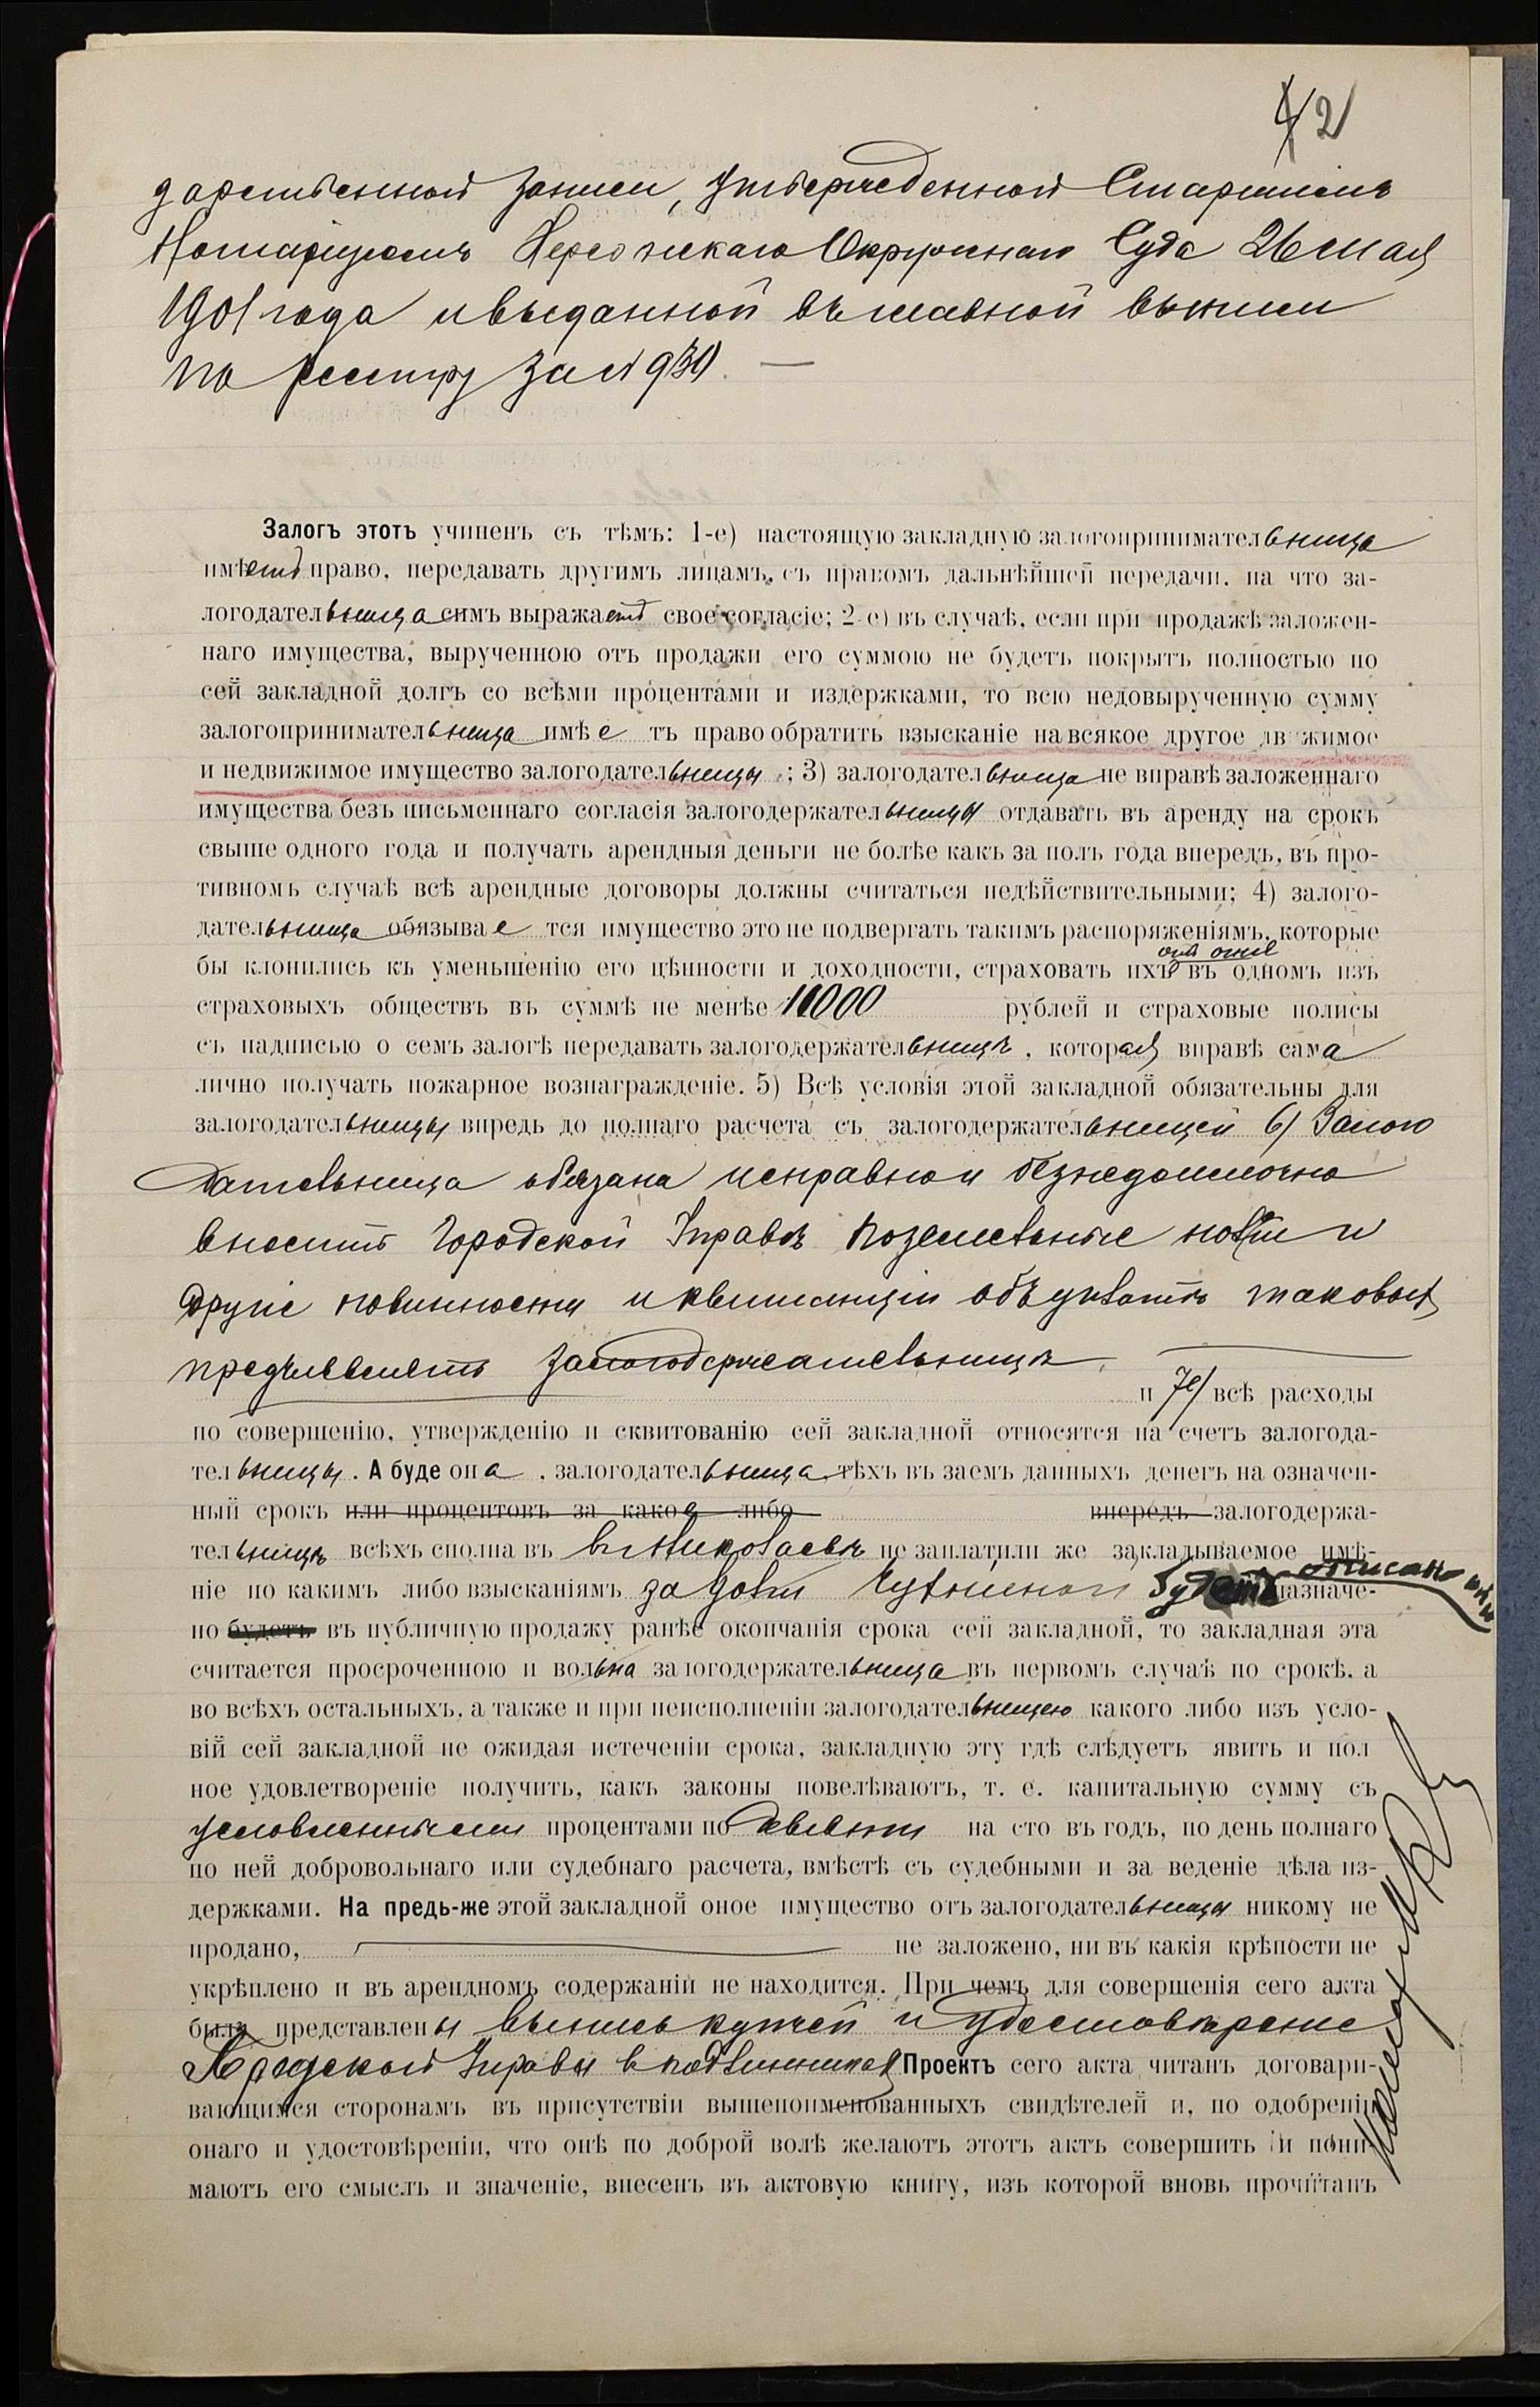 42
дарственной записи, утвержденной Старшимъ
Нотаріусомъ Херсонскаго Окружнаго Суда 26 мая
1901 года и выданной въ главной выписи
по реестру за №
Залогъ этотъ учиненъ съ тѣмъ: 1-е) настоящую закладную залогопринимательница
имѣетъ право, передавать другимъ лицамъ, съ правомъ дальнѣйшей передачи, на что за-
логодательница симъ выражаетъ свое согласіе; 2-е) въ случаѣ, если при продажѣ заложен-
наго имущества, вырученною отъ продажи его суммою не будетъ покрытъ полностью по
сей закладной долгъ со всѣми процентами и издержками, то всю недовырученную сумму
залогопринимательница имѣетъ право обратить взысканіе на всякое другое движимое
и недвижимое имущество залогодательницы; 3) залогодательница не вправѣ заложеннаго
имущества безъ письменнаго согласія залогодержательницы отдавать въ аренду на срокъ
свыше одного года и получать арендныя деньги не болѣе какъ за полъ года впередъ, въ про-
тивномъ случаѣ всѣ арендные договоры должны считаться недѣйствительными; 4) залого-
дательница обязывается имущество это не подвергать такимъ распоряженіямъ, которые
бы клонились къ уменьшенію его цѣнности и доходности, страховать ихъ отъ огня въ одномъ изъ
страховыхъ обществъ въ суммѣ не менѣе 11000 рублей и страховые полисы
съ надписью о семъ залогѣ передавать залогодержательницѣ, которая вправѣ сама
лично получать пожарное вознагражденіе. 5) Всѣ условія этой закладной обязательны для
залогодательницы впредь до полнаго расчета съ залогодержательницей 6) Залого
дательница обязана исправно и безнедоимочно
вносить Городской Управѣ поземельные и
другіе повинности и квитанціи объ уплатѣ таковыхъ
предъявлять залогодержательницѣ.
и 7е) всѣ расходы
по совершенію, утвержденію и сквитованію сей закладной относятся на счетъ залогода-
тельницы. А буде она, залогодательница тѣхъ въ заемъ данныхъ денегъ на означен-
ный срокъ или процентовъ за какое либо впередъ залогодержа-
тельницѣ всѣхъ сполна въ г. Николаевѣ не заплатили же закладываемое имѣ-
ніе по какимъ либо взысканіямъ за долги будетъ описано или назначе-
но будетъ въ публичную продажу ранѣе окончанія срока сей закладной, то закладная эта
считается просроченною и вольна залогодержательница въ первомъ случаѣ по срокѣ, а
во всѣхъ остальныхъ, а также и при неисполненіи залогодательницею какого либо изъ усло-
вій сей закладной не ожидая истеченіи срока, закладную эту гдѣ слѣдуетъ явить и пол
ное удовлетвореніе получить, какъ законы повелѣваютъ, т. е. капитальную сумму съ
условленными процентами по девяти на сто въ годъ, по день полнаго
по ней добровольнаго или судебнаго расчета, вмѣстѣ съ судебными и за веденіе дѣла из-
держками. На предь-же этой закладной оное имущество отъ залогодательницы никому не
продано, не заложено, ни въ какія крѣпости не
укрѣплено и въ арендномъ содержаніи не находится. При чемъ для совершенія сего акта
были представлены выпись купчей и удостовѣреніе
Городской Управы въ подлинникахъ Проектъ сего акта читанъ договари-
вающимся сторонамъ въ присутствіи вышепоименованныхъ свидѣтелей и, по одобреніи
онаго и удостовѣреніи, что онѣ по доброй волѣ желаютъ этотъ актъ совершить и пони-
маютъ его смыслъ и значеніе, внесенъ въ актовую книгу, изъ которой вновь прочитанъ